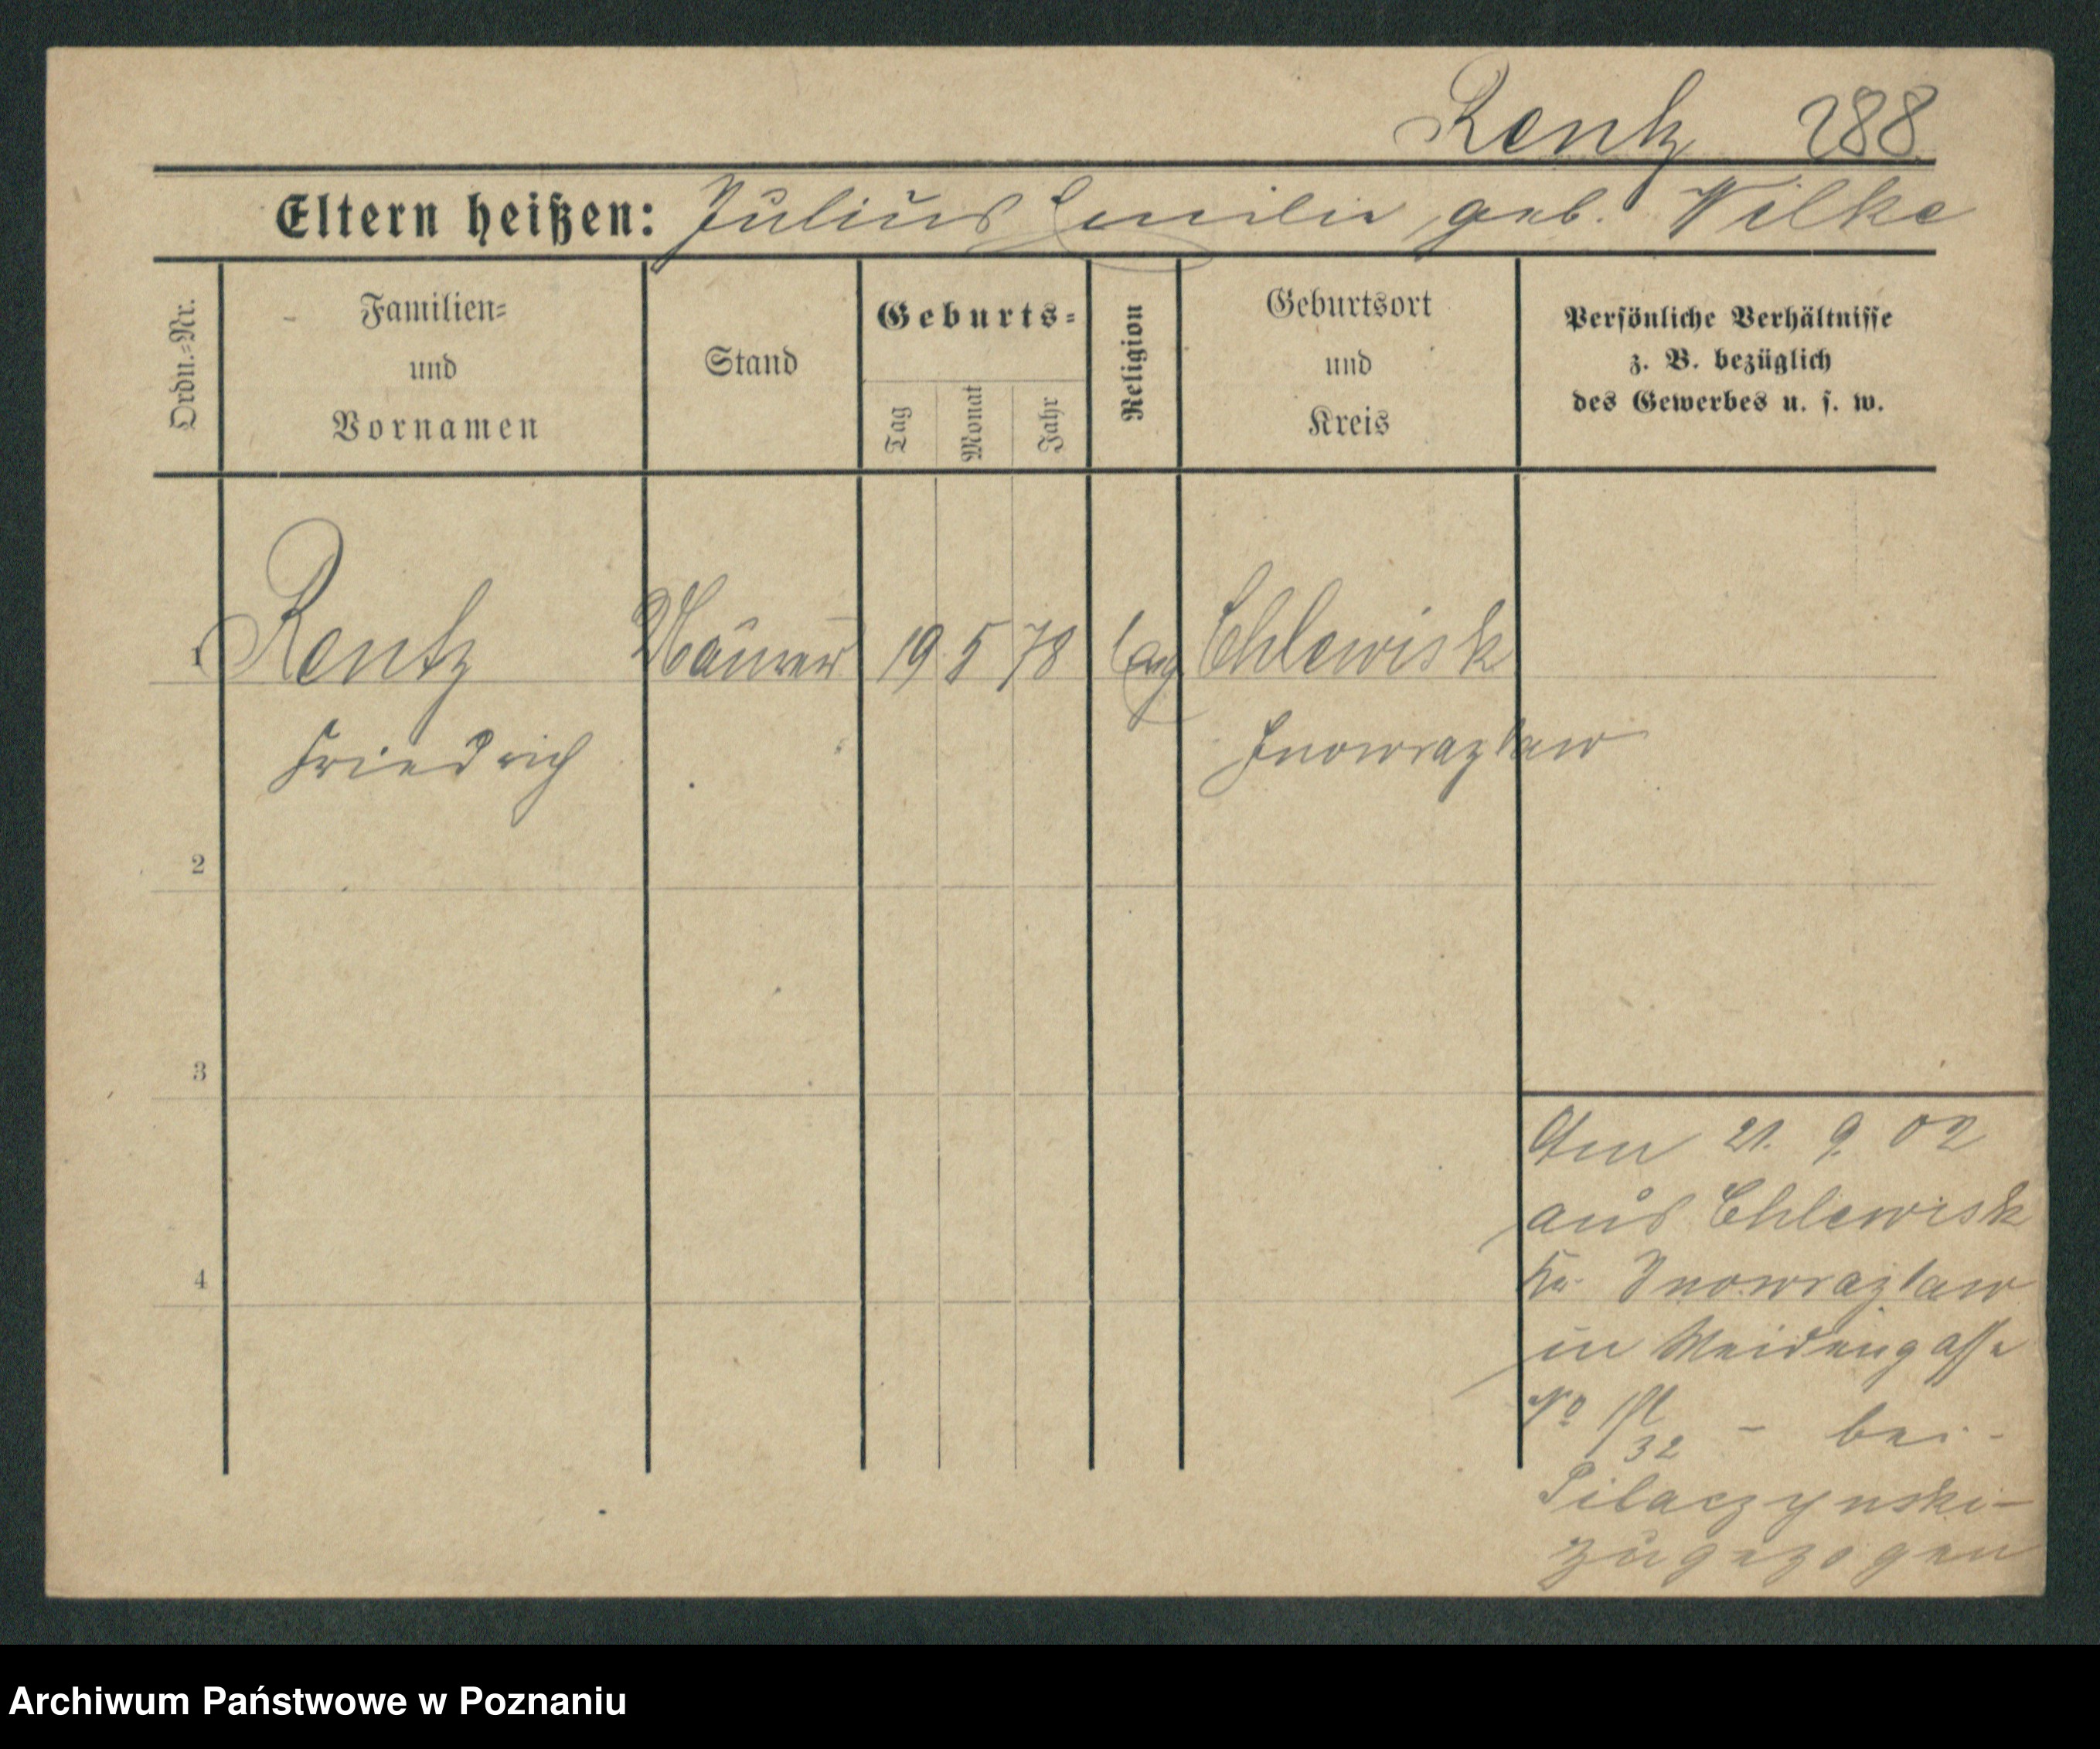 Rentz 288
Eltern heißen: Julius Emilie geb. Wilke
Ordn.=Nr.
Familien=
und
Vornamen
Stand
Geburts=
Tag
Monat
Jahr
Religion
Geburtsort
und
Kreis
Persönliche Verhältnisse
z. B. bezüglich
des Gewerbes u. s. w.
1 Rentz Maurer 19 5 78 Evg Chlewisk
Friedrich Inowrazlaw
2
3
4
Am 21. 9. 02
aus Chlewisk
Kr. Inowrazlaw
in Weidengasse
No 32 - bei -
Pilaczynski -
zugezogen
Archiwum Państwowe w Poznaniu